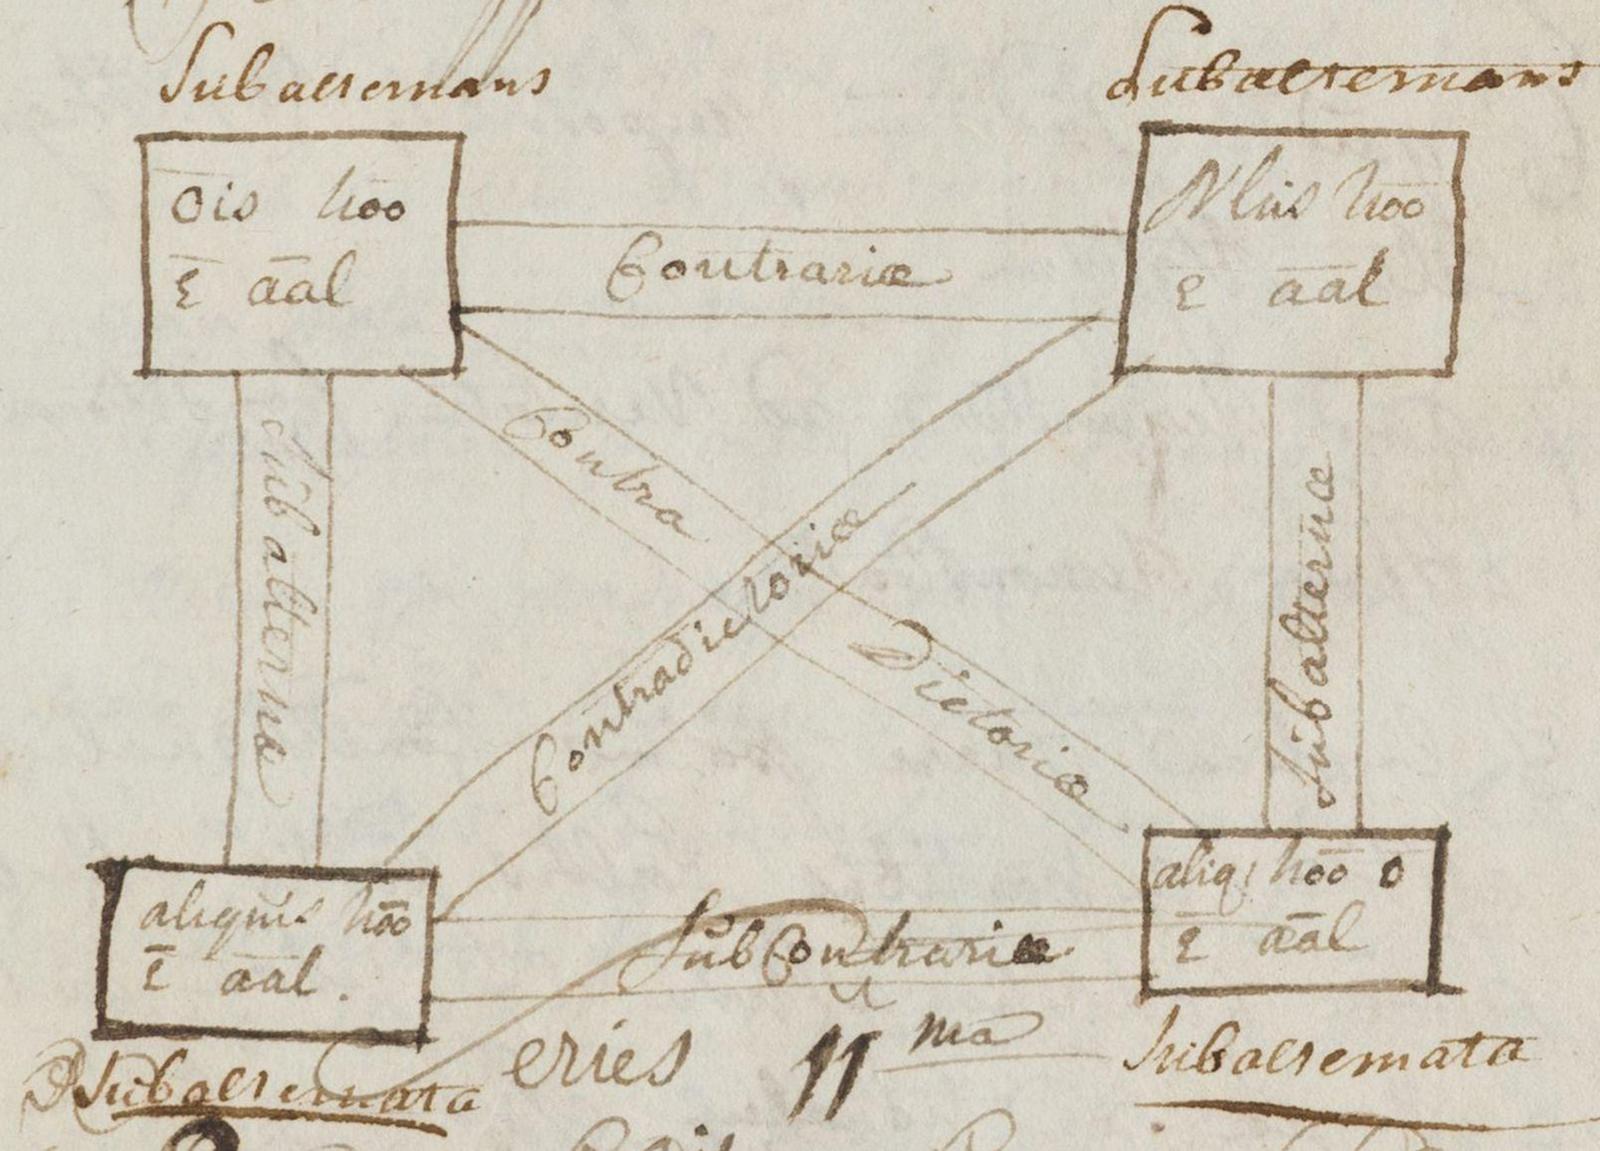 Subalternans
Subalternans
Ois hoo
Ē āal
Nlus hoo
Ē āal
Contrariæ
Contra
Dictoriæ
Contradictoriæ
Subalternæ
Subalternæ
aliquis hōo
Ē āal.
aliqs hōo ō
Ē āal
Subcontrariæ
Subalternata
eries 11 ma
Subalternata